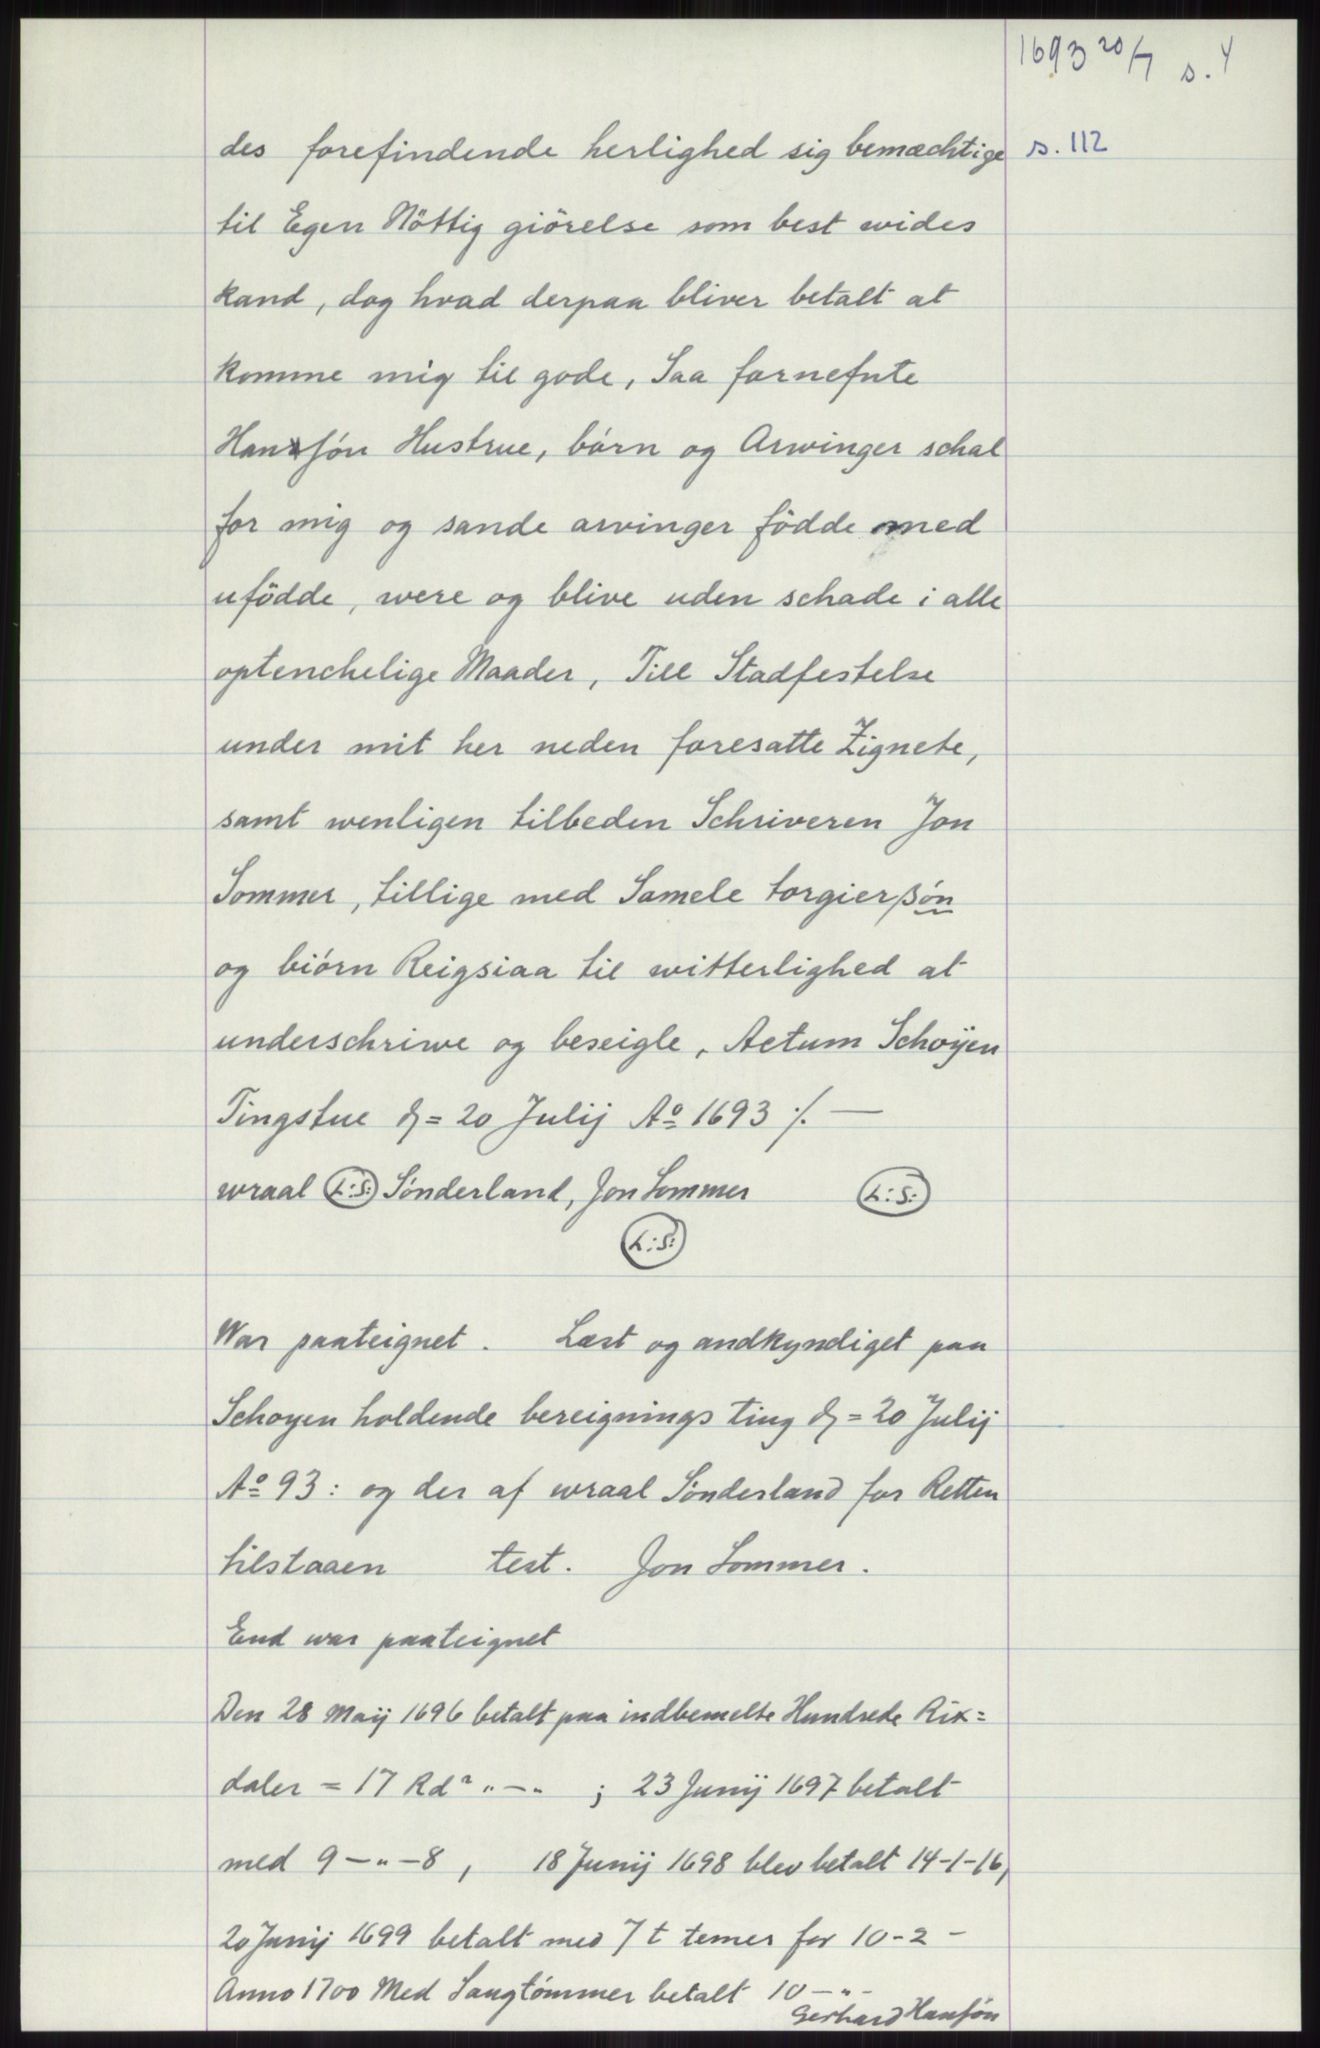 1693 20/7 s. 4
des forefindende herlighed sig bemæchtige s. 112
til Egen Nöttig giörelse som best wides
kand, dog hvad derpaa bliver betalt at
komme mig til gode, Saa fornefnte
Hansſón Hustrue, börn og Arwinger schal
for mig og sande arvinger födde med
ufödde, were og blive uden schade i alle
optenchelige Maader, Till Stadfestelse
under mit her neden foresatte Zignete,
samt wenligen tilbeden Schriveren Jon
Sommer, tillige med Samele torgierßön
og biórn Reigsiaa til witterlighed at
underschriwe og beseigle, Actum Schoyen
Tingstue d= 20 Julij Aº 1693 ./. —
wraal L:S: Sónderland, Jon Sommer L:S:
L:S:
War paateignet. Læst og andkyndiget paa
Schoyen holdende bereignings ting d= 20 Julij
Aº 93: og der af wraal Sönderland for Retten
tilstaaen test. Jon Sommer.
End war paateignet
Den 28 Maij 1696 betalt paa indbemelte Hundrede Rix=
daler = 17 Rdr "—" ; 23 Junij 1697 betalt
med 9 —"—8, 18 Junij 1698 blev betalt 14-1-16,
20 Junij 1699 betalt med 7 t temer for 10-2-
Anno 1700 Med Saugtömmer betalt 10 —"—
Gerhard Hanſón